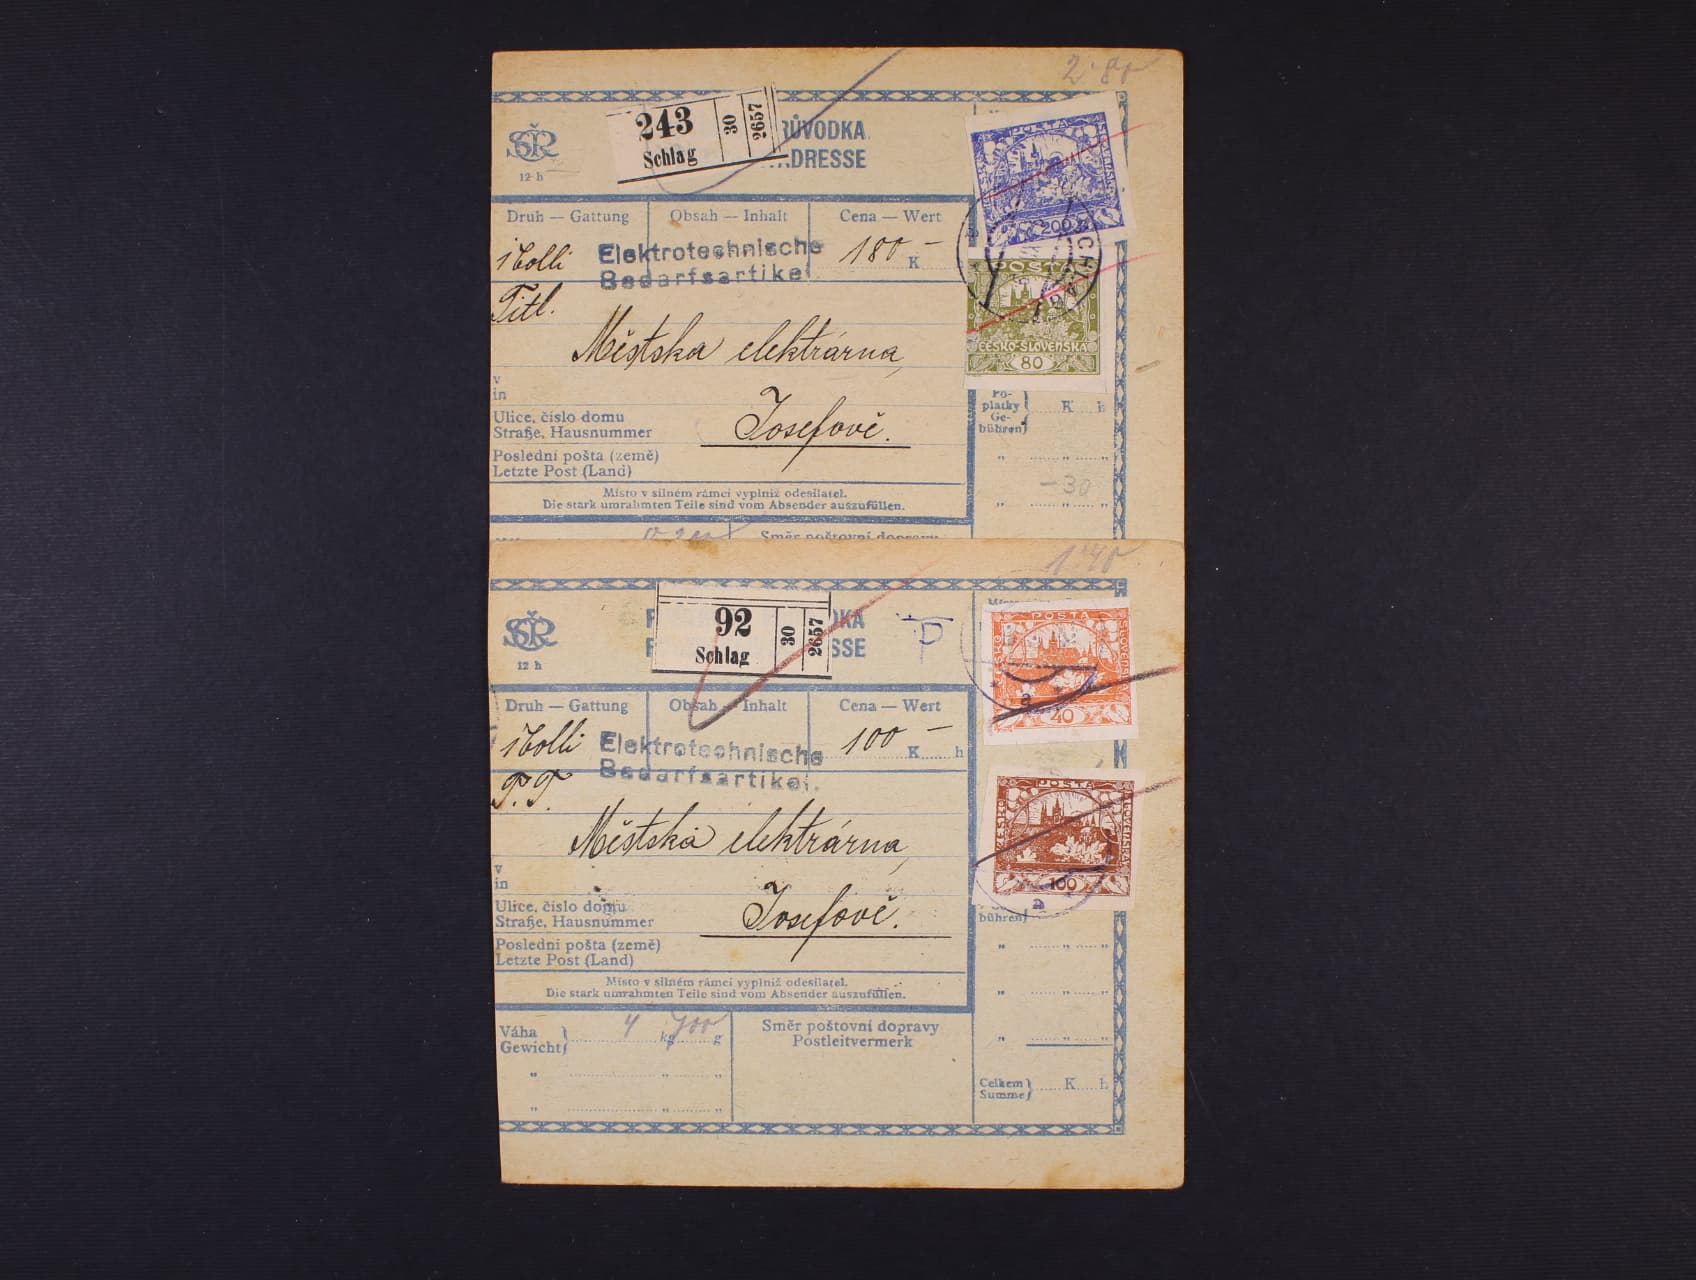 2·80
243
Schlag
30
2657
RŮVODKA.
ADRESSE
ČSR
12 h
POSTA
200
Druh — Gattung
Obsah — Inhalt
Cena — Wert
1 Colli
Elektrotechnische
Bedarfsartikel
180 —
K
Titl.
POSTA
ČESKO-SLOVENSKÁ
80
Městska elektrárna,
v
in
Josefově.
Ulice, číslo domu
Straße, Hausnummer
Poslední pošta (země)
Letzte Post (Land)
Po-
platky
Ge-
bühren
K h
" "
—30
Místo v silném rámci vyplniž odesílatel.
Die stark umrahmten Teile sind vom Absender auszufüllen.
Směr poštovní dopravy
1·40
92
Schlag
30
2657
DKA
SSE
T
ČSR
12 h
POSTA
SLOVENSKÁ
40
Druh — Gattung
Obsah — Inhalt
Cena — Wert
1 Colli
Elektrotechnische
Bedarfsartikel.
100 —
K h
P. T.
POSTA
100
a
Městská elektrárna,
v
in
Josefově.
Ulice, číslo domu
Straße, Hausnummer
bühren
Poslední pošta (země)
Letzte Post (Land)
Místo v silném rámci vyplniž odesílatel.
Die stark umrahmten Teile sind vom Absender auszufüllen.
Váha
Gewicht
4 kg 700 g
Směr poštovní dopravy
Postleitvermerk
Celkem
Summe
K h